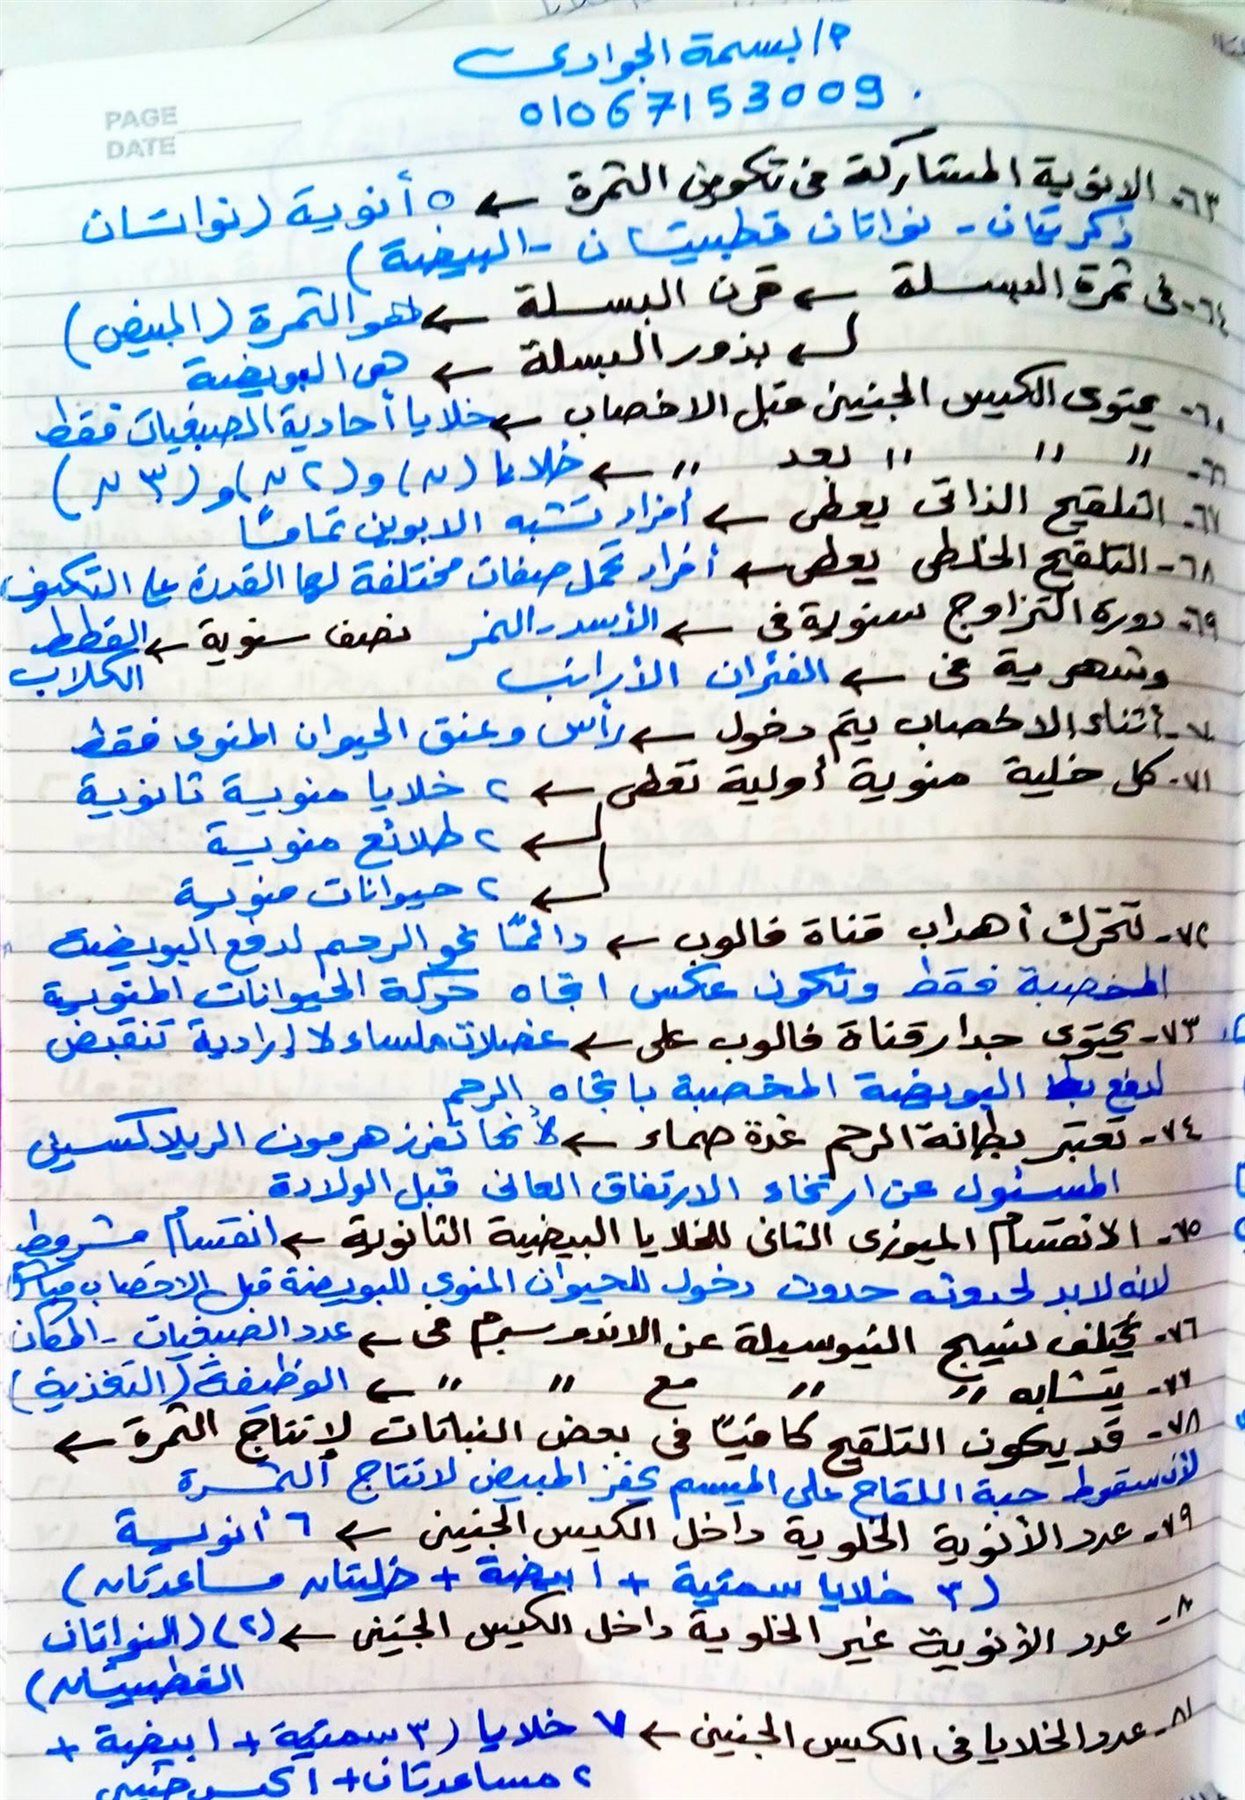 م/ بسمة الجوادى
01067153009
PAGE
DATE
٦٣- الانوية المشاركة فى تكوين الثمرة ← ٥ أنوية (نواتان
ذكريتان - نواتان قطبيتان - البيضة)
٦٤- فى ثمرة البسلة ← قرن البسلة ← هو الثمرة (المبيض)
← بذور البسلة ← هى البويضة
يحتوى الكيس الجنينى قبل الاخصاب ← خلايا أحادية الصبغيات فقط
" " " بعد " ← خلايا (ن) و (٢ن) و (٣ن)
٦٧- التلقيح الذاتى يعطى ← أفراد تشبه الابوين تمامًا
٦٨- التلقيح الخلطى يعطى ← أفراد تحمل صفات مختلفة لها القدرة على التكيف
٦٩- دورة التزاوج سنوية فى ← الأسد - النمر نصف سنوية ← القطط
وشهرية فى ← الفئران الأرانب الكلاب
٧٠- أثناء الاخصاب يتم دخول ← رأس وعنق الحيوان المنوى فقط
٧١- كل خلية منوية أولية تعطى ← ٢ خلايا منوية ثانوية
← ٢ طلائع منوية
← ٢ حيوانات منوية
٧٢- تتحرك أهداب قناة فالوب ← دائمًا نحو الرحم لدفع البويضة
المخصبة فقط وتكون عكس اتجاه حركة الحيوانات المنوية
٧٣- يحتوى جدار قناة فالوب على ← عضلات ملساء لا إرادية تنقبض
لدفع البويضة المخصبة باتجاه الرحم
٧٤- تعتبر بطانة الرحم غدة صماء ← لأنها تفرز هرمون الريلاكسين
المسئول عن ارتخاء الارتفاق العانى قبل الولادة
٧٥- الانقسام الميوزى الثانى للخلايا البيضية الثانوية ← انقسام مشروط
لانه لابد لحدوثه حدوث دخول للحيوان المنوى للبويضة قبل الاخصاب
٧٦- يختلف نسيج النيوسيلة عن الاندوسبرم فى ← عدد الصبغيات - المكان
٧٦- يتشابه " " مع " " ← الوظيفة (التغذية)
٧٨- قد يكون التلقيح كافيًا فى بعض النباتات لإنتاج الثمرة ←
لأن سقوط حبة اللقاح على الميسم يحفز المبيض لانتاج الثمرة
٧٩- عدد الأنوية الخلوية داخل الكيس الجنينى ← ٦ أنوية
(٣ خلايا سمتية + ١ بيضة + خليتان مساعدتان)
٨٠- عدد الأنوية غير الخلوية داخل الكيس الجنينى ← (٢) (النواتان
القطبيتان)
٨١- عدد الخلايا فى الكيس الجنينى ← ٧ خلايا (٣ سمتية + ١ بيضة +
٢ مساعدتان + ١